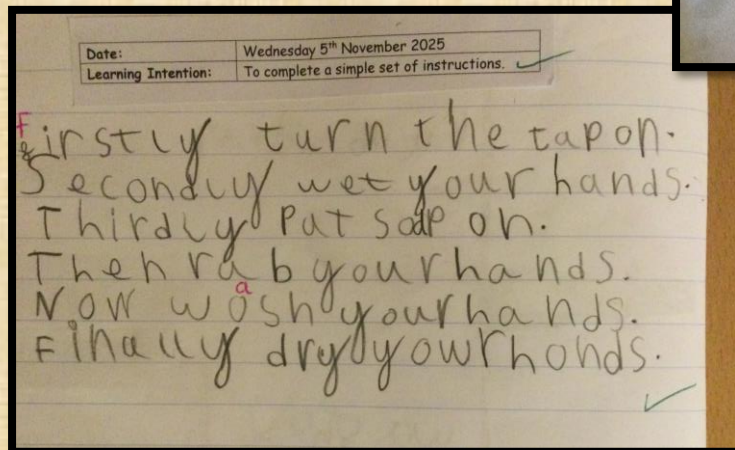 Date: Wednesday 5th November 2025
Learning Intention: To complete a simple set of instructions.
Firstly turn the tap on.
Secondly wet your hands.
Thirdly put soap on.
Then rab your hands.
Now wash your hands.
Finally dry yowr honds.